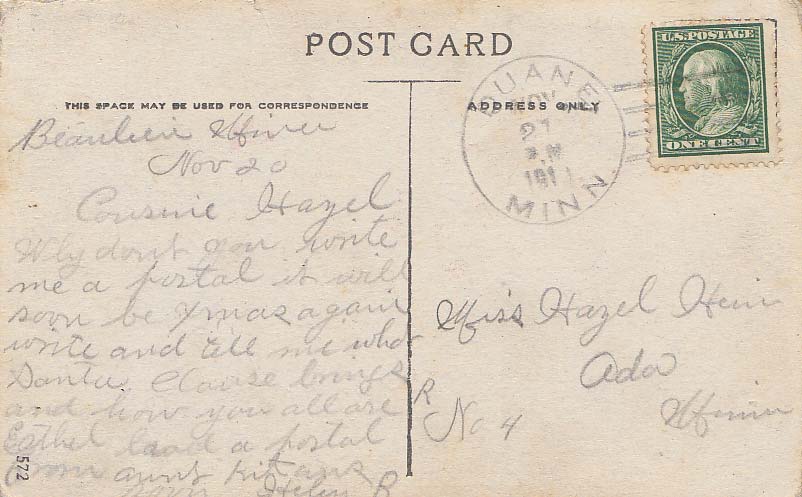 POST CARD
THIS SPACE MAY BE USED FOR CORRESPONDENCE
ADDRESS ONLY
U.S. POSTAGE
ONE CENT
DUANE
NOV
21
191
MINN.
Beaulieu Minn
Nov 20
Cousine Hazel
Why dont you write
me a postal it will
soon be Xmas again
write and tell me what
Santa Clause brings
and how you all are
Esthel had a postal
from aunt
Helen R
Miss Hazel Hein
Ada
Minn
R
No 4
572